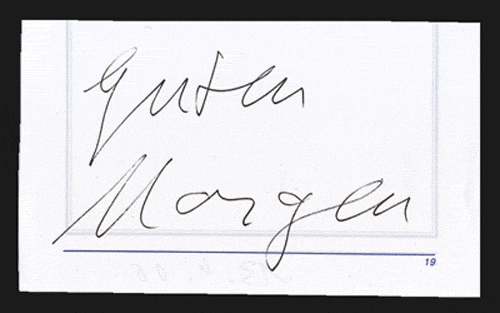 Guten
Morgen
19